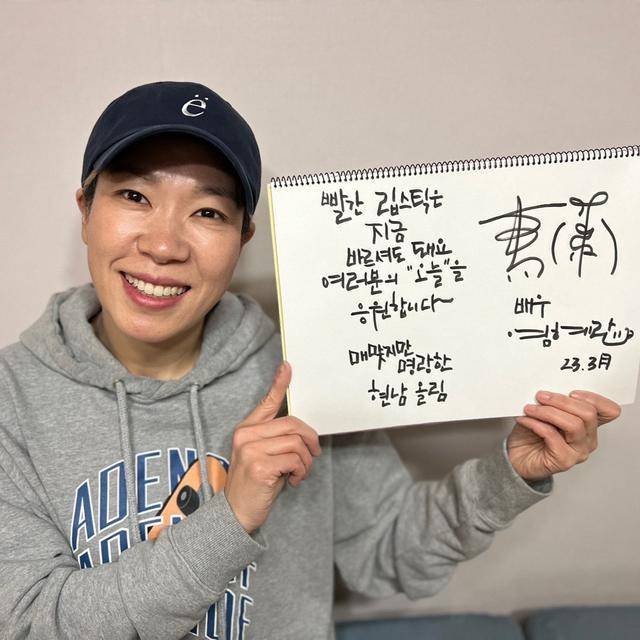 ë
빨간 립스틱은
지금
바르셔도 돼요
여러분의 "오늘"을
응원합니다~
매맞지만
명랑한
현남 올림
배우
염혜란
23.3月
ADEN